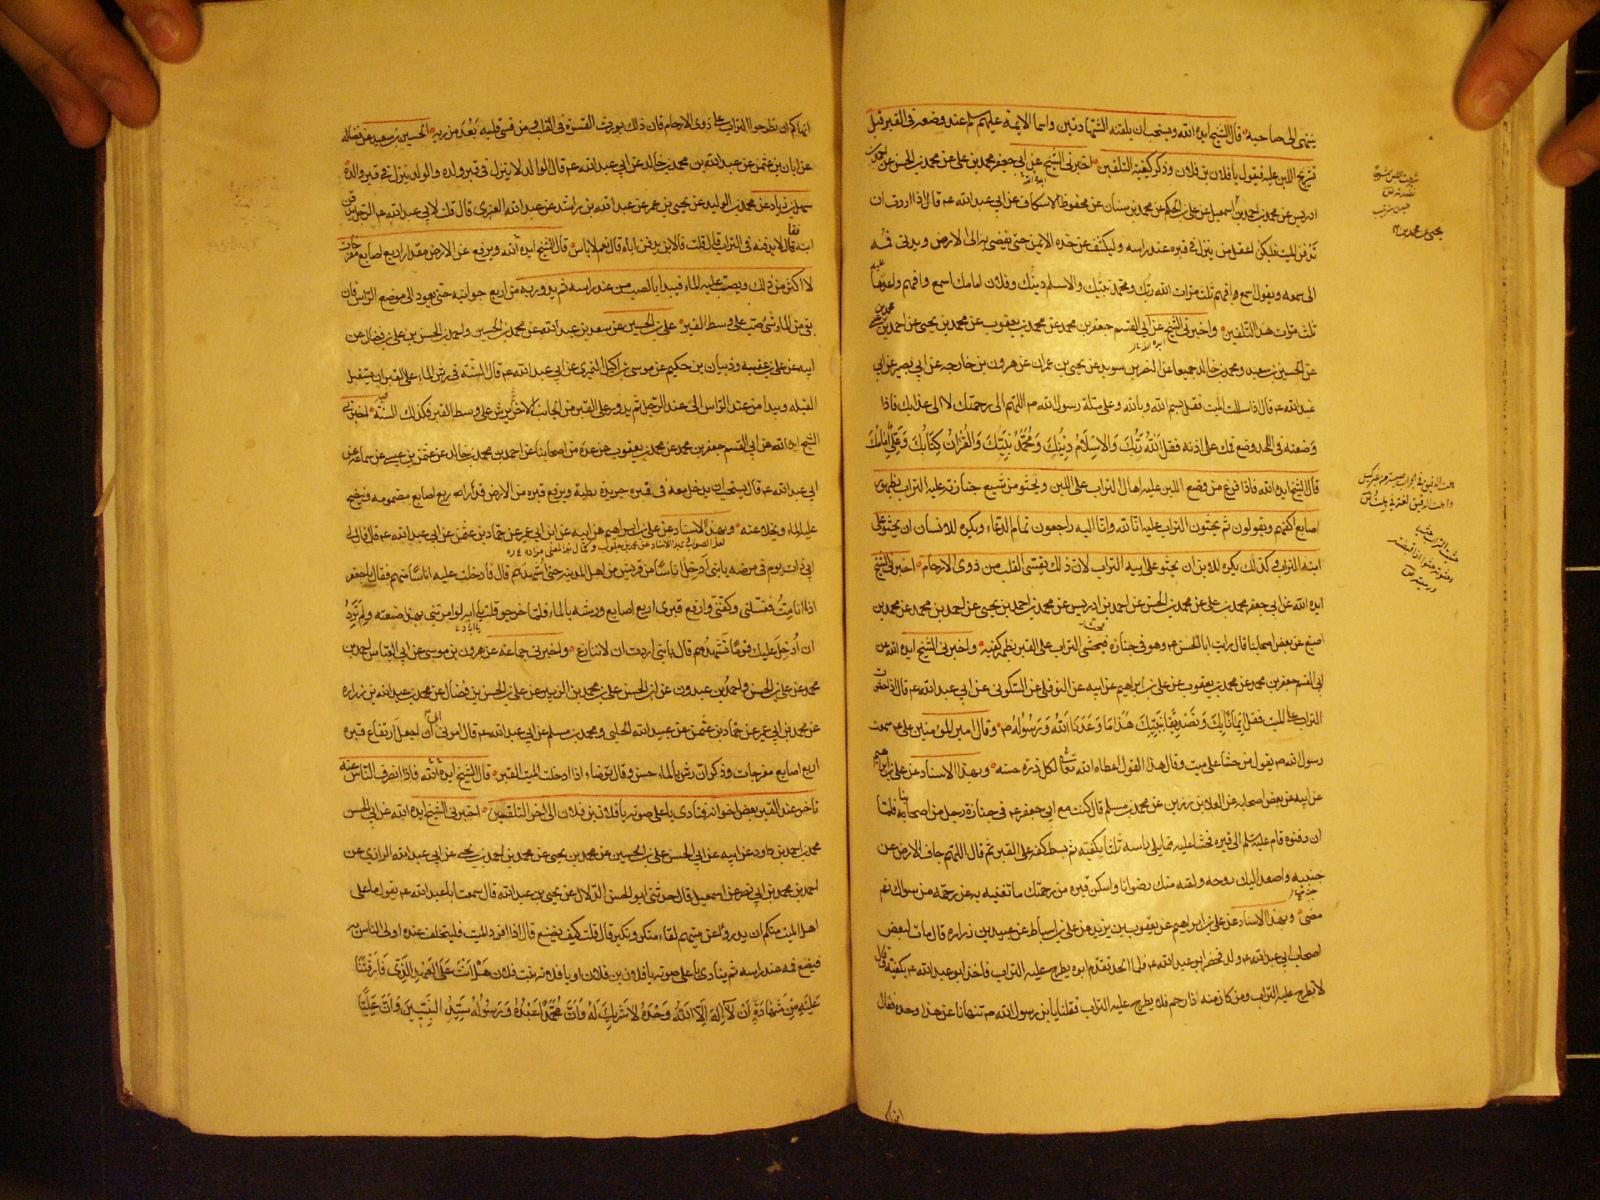 ينتهي الى صاحبه قال الشيخ ايده الله ويستحب ان يلقنه الشهادتين واسما الايمة عليهم السلم عند وضعه في القبر قبل
تشريج اللبن عليه فيقول يا فلان بن فلان وذكر كيفية التلقين اخبرني الشيخ عن ابي جعفر محمد بن علي عن محمد بن الحسن عن احمد بن
ادريس عن محمد بن احمد بن اسمعيل عن علي بن الحكم عن محمد بن سنان عن محفوظ الاسكاف عن ابي عبد الله ع قال اذا اردت ان
تدفن الميت فليكن اعقل من ينزل في قبره عند راسه وليكشف عن خده الايمن حتى يفضي به الى الارض ويدني فمه
الى سمعه ويقول اسمع وافهم ثلث مرات الله ربك ومحمد نبيك والاسلم دينك وفلان امامك اسمع وافهم واعدها عليه
ثلث مرات هذا التلقين واخبرني الشيخ عن ابي القسم جعفر بن محمد عن محمد بن يعقوب عن محمد بن يحيى عن احمد بن محمد بن عيسى
عن الحسين بن سعيد ومحمد بن خالد جميعا عن النضر بن سويد عن يحيى بن عمران عن هرون بن خارجه عن ابي بصير عن ابي
عبد الله ع قال اذا سللت الميت فقل بسم الله وبالله وعلى ملة رسول الله ص اللهم الى رحمتك لا الى عذابك فاذا
وضعته في اللحد وضع فمك على اذنه فقل الله ربك والاسلام دينك ومحمد نبيك والقران كتابك وعلي امامك
قال الشيخ ايده الله فاذا فرغ من وضع اللبن عليه اهال التراب على اللبن ويحثو من شيع جنازته عليه التراب بظهور
اصابع اكفهم ويقولون ثم يحثون التراب عليه انا لله وانا اليه راجعون تمام الدعاء ويكره للانسان ان يحثو على
ابنه التراب وكذلك يكره للابن ان يحثو على ابيه التراب لان ذلك يقسي القلب من ذوي الارحام اخبرني الشيخ
ايده الله عن ابي جعفر محمد بن علي عن محمد بن الحسن عن احمد بن ادريس عن محمد بن احمد بن يحيى عن احمد بن محمد عن محمد بن
اصبغ عن بعض اصحابنا قال رايت ابا الحسن ع وهو في جنازة فيحثى التراب على القبر بظهر كفيه واخبرني الشيخ ايده الله عن
ابي القسم جعفر بن محمد عن محمد بن يعقوب عن علي بن ابراهيم عن ابيه عن النوفلي عن السكوني عن ابي عبد الله ع قال اذا حثوت
التراب على الميت فقل ايمانا بك وتصديقا بنبيك هذا ما وعدنا الله ورسوله ص وقال امير المومنين على ع سمعت
رسول الله ص يقول من حثا على ميت وقال هذا القول اعطاه الله تعالى لكل ذرة حسنه وبهذا الاسناد عن علي بن ابراهيم
عن ابيه عن بعض اصحابه عن العلا بن رزين عن محمد بن مسلم قال كنت مع ابي جعفر ع في جنازة رجل من اصحابنا فلما
ان دفنوه قام عليه السلم الى قبره فحثا عليه مما يلي راسه ثلثا بكفيه ثم بسط كفه على القبر ثم قال اللهم جاف الارض عن
جنبيه واصعد اليك روحه ولقه منك رضوانا واسكن قبره من رحمتك ما تغنيه به عن رحمه من سواك ثم
مضى وبهذا الاسناد عن علي بن ابراهيم عن يعقوب بن يزيد عن علي بن اسباط عن عبيد بن زراره قال مات لبعض
اصحاب ابي عبد الله ع ولد فحضر ابو عبد الله ع فلما الحد تقدم ابوه يطرح عليه التراب فاخذ ابو عبد الله ع بكفيه وقال
لا تطرح عليه التراب ومن كان منه اذا رحم فلا يطرح عليه التراب فقلنا يا ابن رسول الله ص تنهانا عن هذا وحده فقال
انهاكم
يحيى عن محمد بن
انهاكم ان تطرحوا التراب على ذوي الارحام فان ذلك يورث القسوة في القلب ومن قسى قلبه بعد من ربه الحسين بن سعيد عن فضاله
عن ابان بن عثمن عن عبد الله بن محمد بن خالد عن ابي عبد الله ع قال الوالد لا ينزل في قبر ولده والولد ينزل في قبر والده
سهل بن زياد عن محمد بن الوليد عن يحيى بن عمر عن عبد الله بن راشد عن عبد الله العنبري قال قلت لابي عبد الله ع الرجل يدفن
ابنه فقال لا يدفنه في التراب قال قلت فالابن يدفن اباه قال نعم لا باس قال الشيخ ايده الله ويرفع عن الارض مقدار اربع اصابع مفرجات
لا اكثر من ذلك ويصب عليه الماء فيبدا بالصب من عند راسه ثم يدور به من اربع جوانبه حتى يعود الى موضع الراس فان
بقى من الماء شئ صب على وسط القبر علي بن الحسين عن سعد بن عبد الله عن محمد بن الحسين واحمد بن الحسن بن علي بن فضال عن
ابيه عن علي بن عقبه وذبيان بن حكيم عن موسى بن اكيل النميري عن ابي عبد الله ع قال السنة في رش الماء على القبر ان يستقبل
القبله ويبدا من عند الراس الى عند الرجل ثم يدور على القبر من الجانب الاخر ثم يرش على وسط القبر فكذلك السنة فيه اخبرني
الشيخ ايده الله عن ابي القسم جعفر بن محمد عن محمد بن يعقوب عن عدة من اصحابنا عن احمد بن محمد بن خالد عن عثمن بن عيسى عن سماعه عن
ابي عبد الله ع قال يستحب ان يدخل معه في قبره جريدة رطبة ويرفع قبره من الارض قدر اربع اصابع مضمومه وينضح
عليه الماء ويخلا عنه وبهذا الاسناد عن علي بن ابراهيم عن ابيه عن ابن ابي عمير عن حماد بن عثمن عن ابي عبد الله ع قال قال لى
ابي ذات يوم في مرضه يا بني ادخل اناسا من قريش من اهل المدينة حتى اشهدهم قال فادخلت عليه اناسا منهم فقال يا جعفر
اذا انا مت فغسلني وكفني وارفع قبري اربع اصابع ورشه بالماء فلما خرجوا قلت يا ابه لو امرتني بهذا صنعته ولم ترد
ان ادخل عليك قوما تشهدهم قال يا بني اردت ان لا تنازع واخبرني جماعة عن هرون بن موسى عن ابي العباس احمد بن
محمد عن علي بن الحسن واحمد بن عبدون عن ابن الحسن علي بن محمد بن الزبير عن علي بن الحسن بن فضال عن محمد بن عبد الله بن زراره
عن محمد بن ابي عمير عن حماد بن عثمن عن عبيد الله الحلبي ومحمد بن مسلم عن ابي عبد الله ع قال امرني ابي ان اجعل ارتفاع قبره
اربع اصابع مفرجات وذكر ان رش بالماء حسن وقال توضاء اذا ادخلت الميت القبر قال الشيخ ايده الله فاذا انصرف الناس عنه
تاخر عند القبر بعض اخوانه فنادى باعلى صوته يا فلان بن فلان الى اخر التلقين اخبرني الشيخ ايده الله عن ابي الحسن
محمد بن احمد بن داود عن ابيه عن ابي الحسن علي بن الحسين عن محمد بن يحيى عن محمد بن احمد بن يحيى عن ابي عبد الله الرازي عن
احمد بن محمد بن ابي نصر عن اسمعيل قال حدثني ابو الحسن الدلال عن يحيى بن عبد الله قال سمعت ابا عبد الله ع يقول ما على
اهل الميت منكم ان يدرؤا عن ميتهم لقاء منكر ونكير قال قلت كيف يصنع قال اذا افرد الميت فليتخلف عنده اولى الناس به
فيضع فمه عند راسه ثم ينادي باعلى صوته يا فلان بن فلان او يا فلانة بنت فلان هل انت على العهد الذي فارقتنا
عليه من شهادة ان لا اله الا الله وحده لا شريك له وان محمدا عبده ورسوله سيد النبيين وان عليا